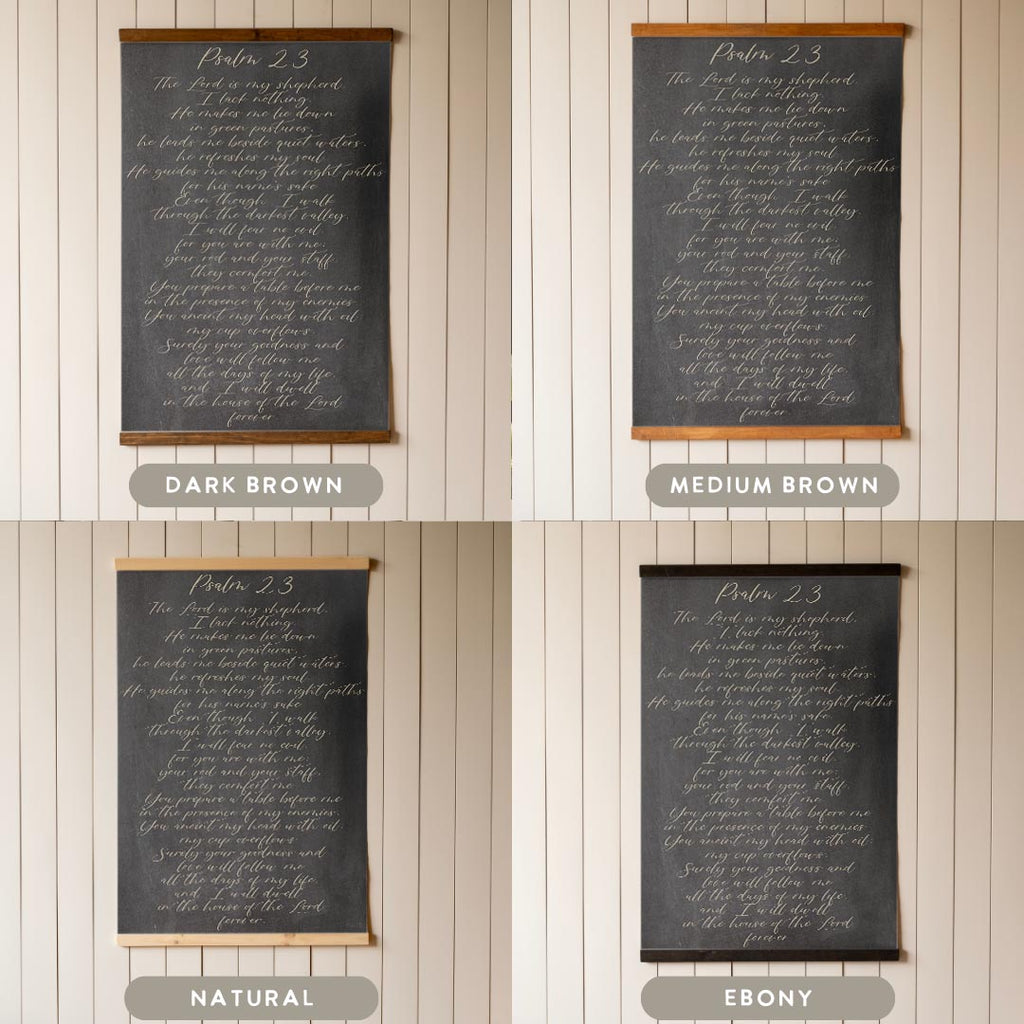 Psalm 23
The Lord is my shepherd.
I lack nothing.
He makes me lie down
in green pastures,
he leads me beside quiet waters,
he refreshes my soul
He guides me along the right paths
for his name's sake
Even though I walk
through the darkest valley,
I will fear no evil
for you are with me;
your rod and your staff,
they comfort me.
You prepare a table before me
in the presence of my enemies
You anoint my head with oil;
my cup overflows.
Surely your goodness and
love will follow me
all the days of my life,
and I will dwell
in the house of the Lord
forever.
DARK BROWN
Psalm 23
The Lord is my shepherd.
I lack nothing.
He makes me lie down
in green pastures,
he leads me beside quiet waters,
he refreshes my soul
He guides me along the right paths
for his name's sake
Even though I walk
through the darkest valley,
I will fear no evil
for you are with me;
your rod and your staff,
they comfort me.
You prepare a table before me
in the presence of my enemies
You anoint my head with oil;
my cup overflows.
Surely your goodness and
love will follow me
all the days of my life,
and I will dwell
in the house of the Lord
forever.
MEDIUM BROWN
Psalm 23
The Lord is my shepherd.
I lack nothing.
He makes me lie down
in green pastures,
he leads me beside quiet waters,
he refreshes my soul
He guides me along the right paths
for his name's sake
Even though I walk
through the darkest valley,
I will fear no evil
for you are with me;
your rod and your staff,
they comfort me.
You prepare a table before me
in the presence of my enemies
You anoint my head with oil;
my cup overflows.
Surely your goodness and
love will follow me
all the days of my life,
and I will dwell
in the house of the Lord
forever.
NATURAL
Psalm 23
The Lord is my shepherd.
I lack nothing.
He makes me lie down
in green pastures,
he leads me beside quiet waters,
he refreshes my soul
He guides me along the right paths
for his name's sake
Even though I walk
through the darkest valley,
I will fear no evil
for you are with me;
your rod and your staff,
they comfort me.
You prepare a table before me
in the presence of my enemies
You anoint my head with oil;
my cup overflows.
Surely your goodness and
love will follow me
all the days of my life,
and I will dwell
in the house of the Lord
forever.
EBONY